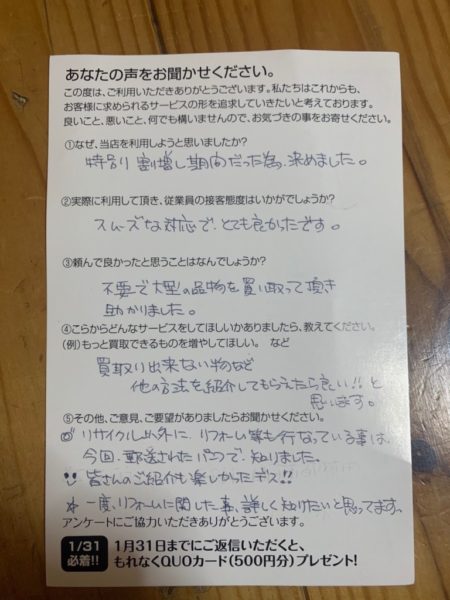 あなたの声をお聞かせください。
この度は、ご利用いただきありがとうございます。私たちはこれからも、
お客様に求められるサービスの形を追求していきたいと考えております。
良いこと、悪いこと、何でも構いませんので、お気づきの事をお寄せください。
①なぜ、当店を利用しようと思いましたか?
特別割増し期間だった為、決めました。
②実際に利用して頂き、従業員の接客態度はいかがでしょうか?
スムーズな対応で、とても良かったです。
③頼んで良かったと思うことはなんでしょうか?
不要で大型の品物を買い取って頂き
助かりました。
④こらからどんなサービスをしてほしいかありましたら、教えてください。
(例)もっと買取できるものを増やしてほしい。 など
買取り出来ない物など
他の方法を紹介してもらえたら良い!!と
思います。
⑤その他、ご意見、ご要望がありましたらお聞かせください。
リサイクル以外に、リフォーム等も行なっている事は、
今回、郵送されたパンフで、知りました。
皆さんのご紹介も楽しかったデス!!
一度、リフォームに関した事、詳しく知りたいと思ってますっ
アンケートにご協力いただきありがとうございます。
1/31
必着!!
1月31日までにご返信いただくと、
もれなくQUOカード(500円分)プレゼント!